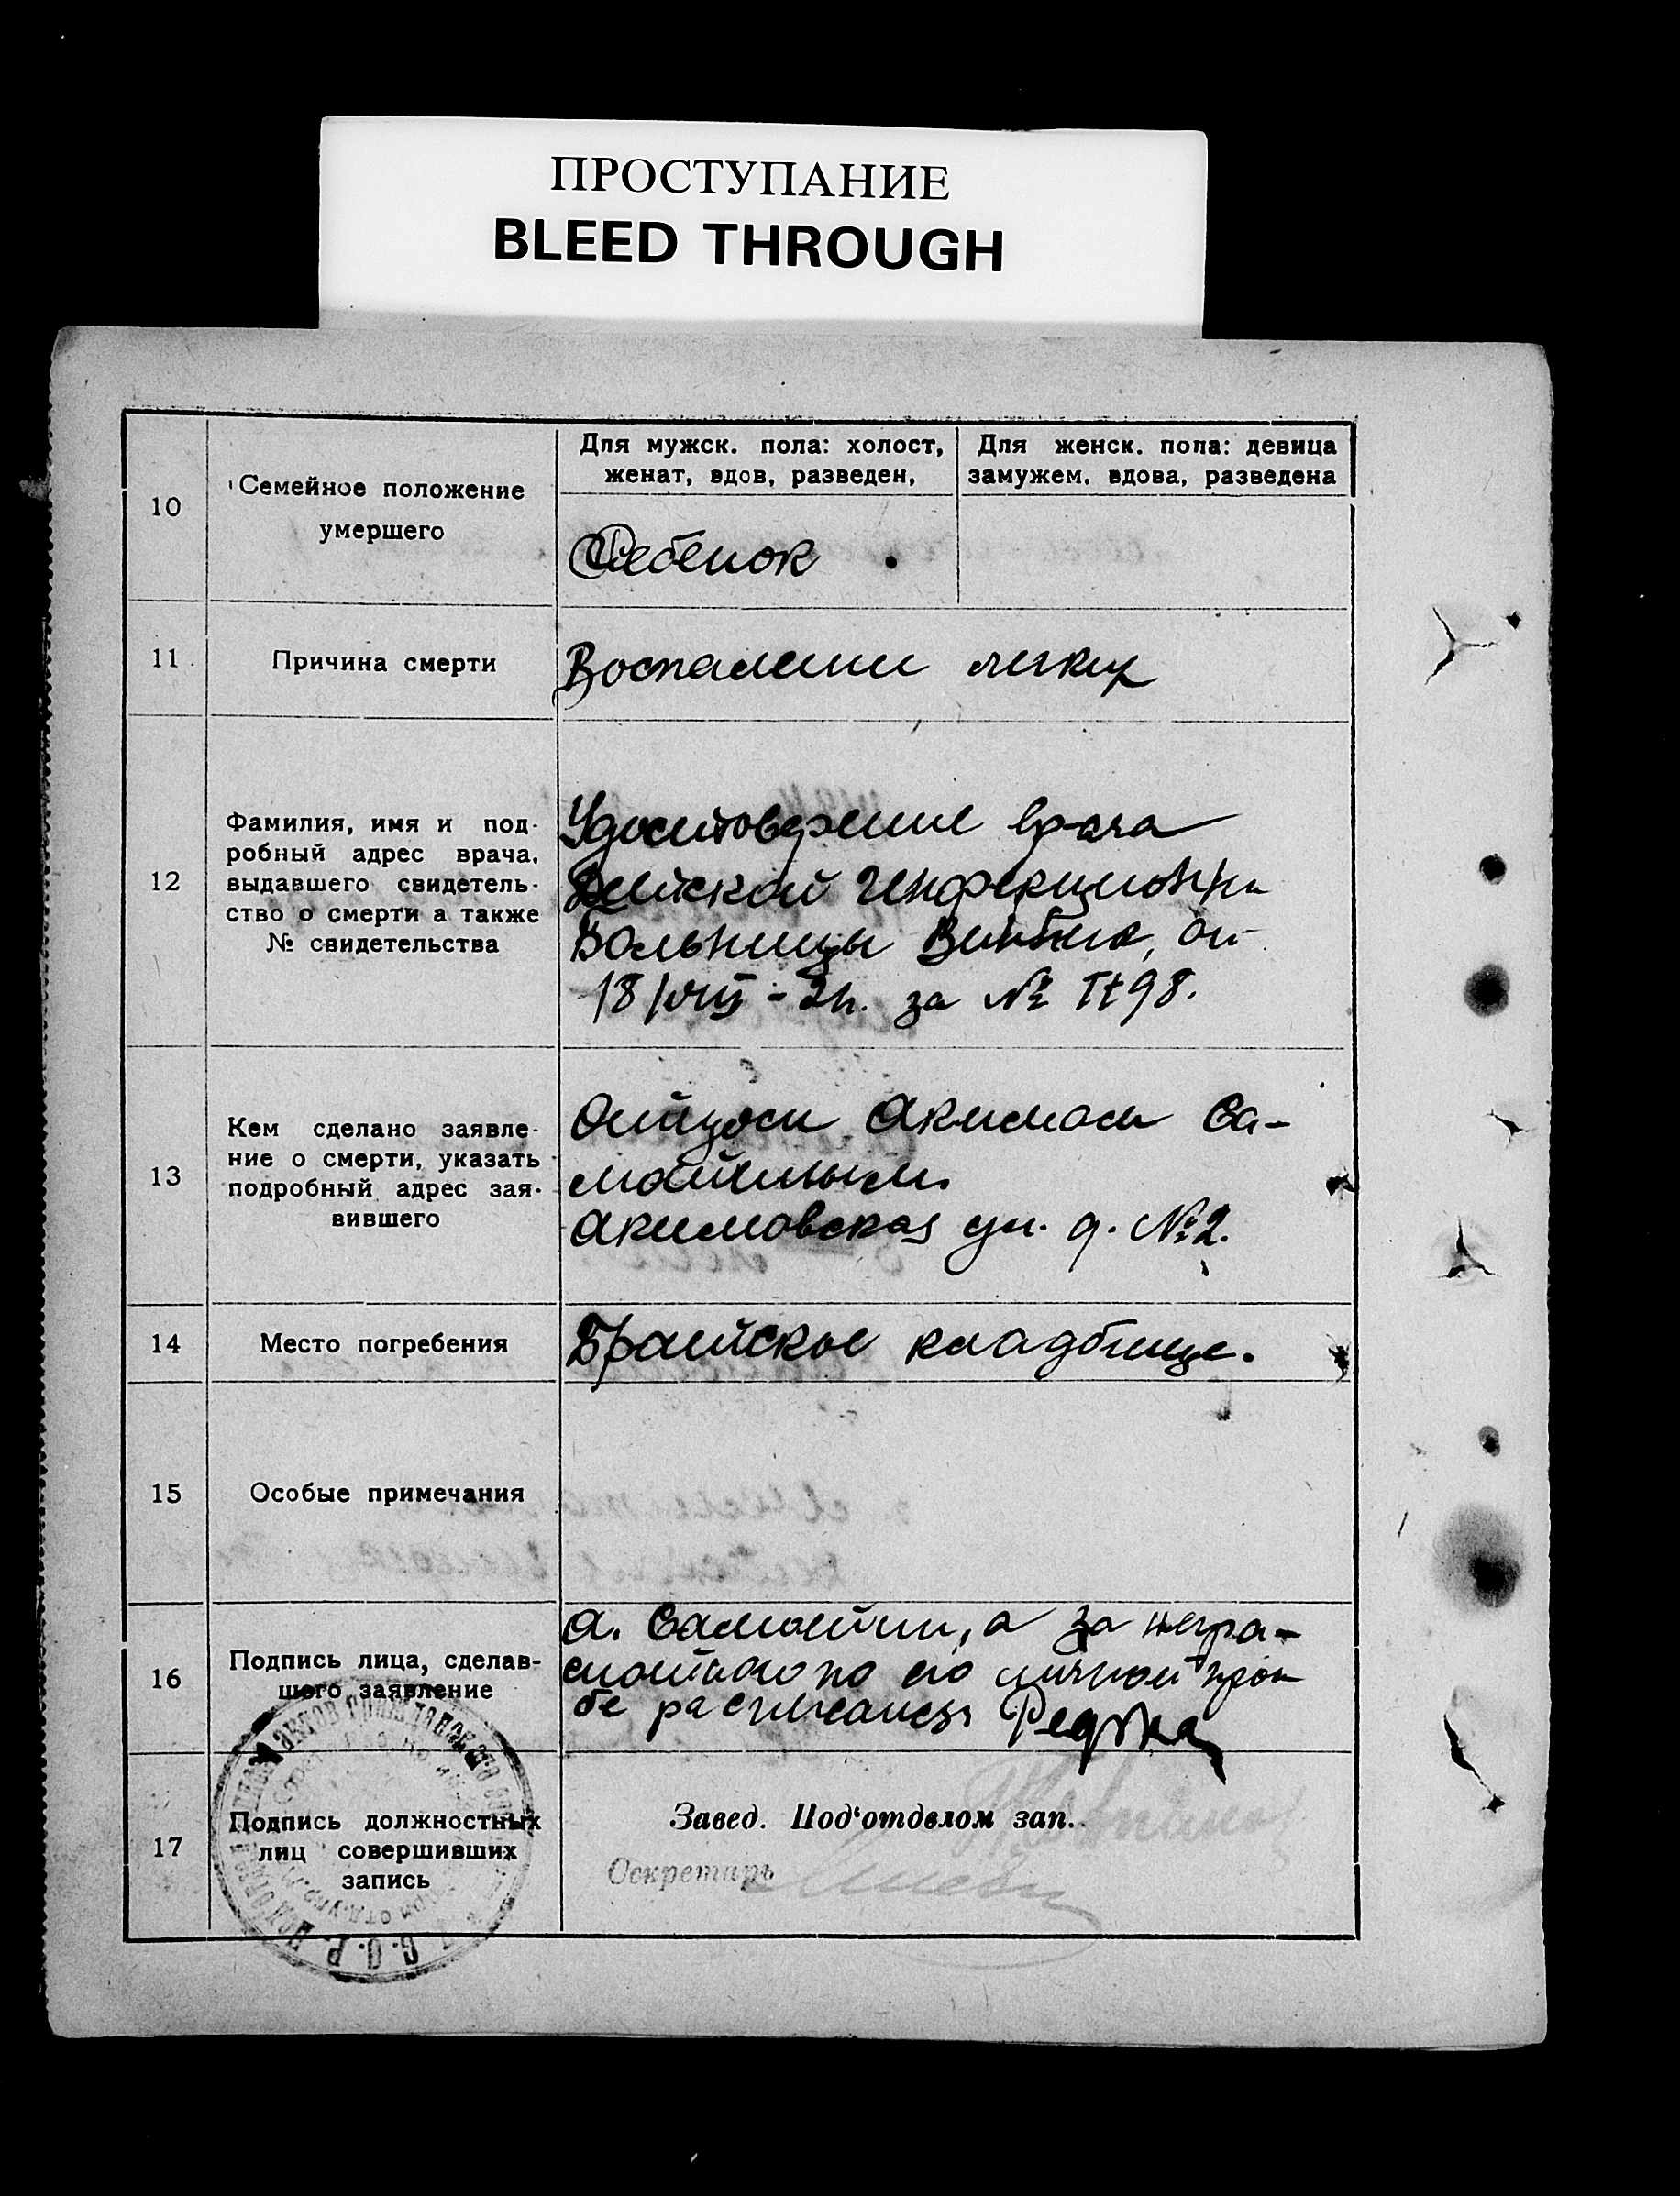 ПРОСТУПАНИЕ
BLEED THROUGH
10
Семейное положение
умершего
Для мужск. пола: холост,
женат, вдов, разведен,
Для женск. пола: девица
замужем, вдова, разведена
Ребенок
11
Причина смерти
Воспаление легких
12
Фамилия, имя и под-
робный адрес врача,
выдавшего свидетель-
ство о смерти а также
№ свидетельства
Удостоверение врача
Детской Инфекционн
Больницы от
18/VIII - за №
13
Кем сделано заявле-
ние о смерти, указать
подробный адрес зая-
вившего
Отцом Акимом Са-
мойтиным
Акимовская ул. д. №2.
14
Место погребения
Братское кладбище.
15
Особые примечания
16
Подпись лица, сделав-
шего заявление
А. а за негра-
мотного по его личной прось
бе расписалась
17
Подпись должностных
лиц совершивших
запись
Завед. Под'отделом зап.
Секретарь
С. С. Р.